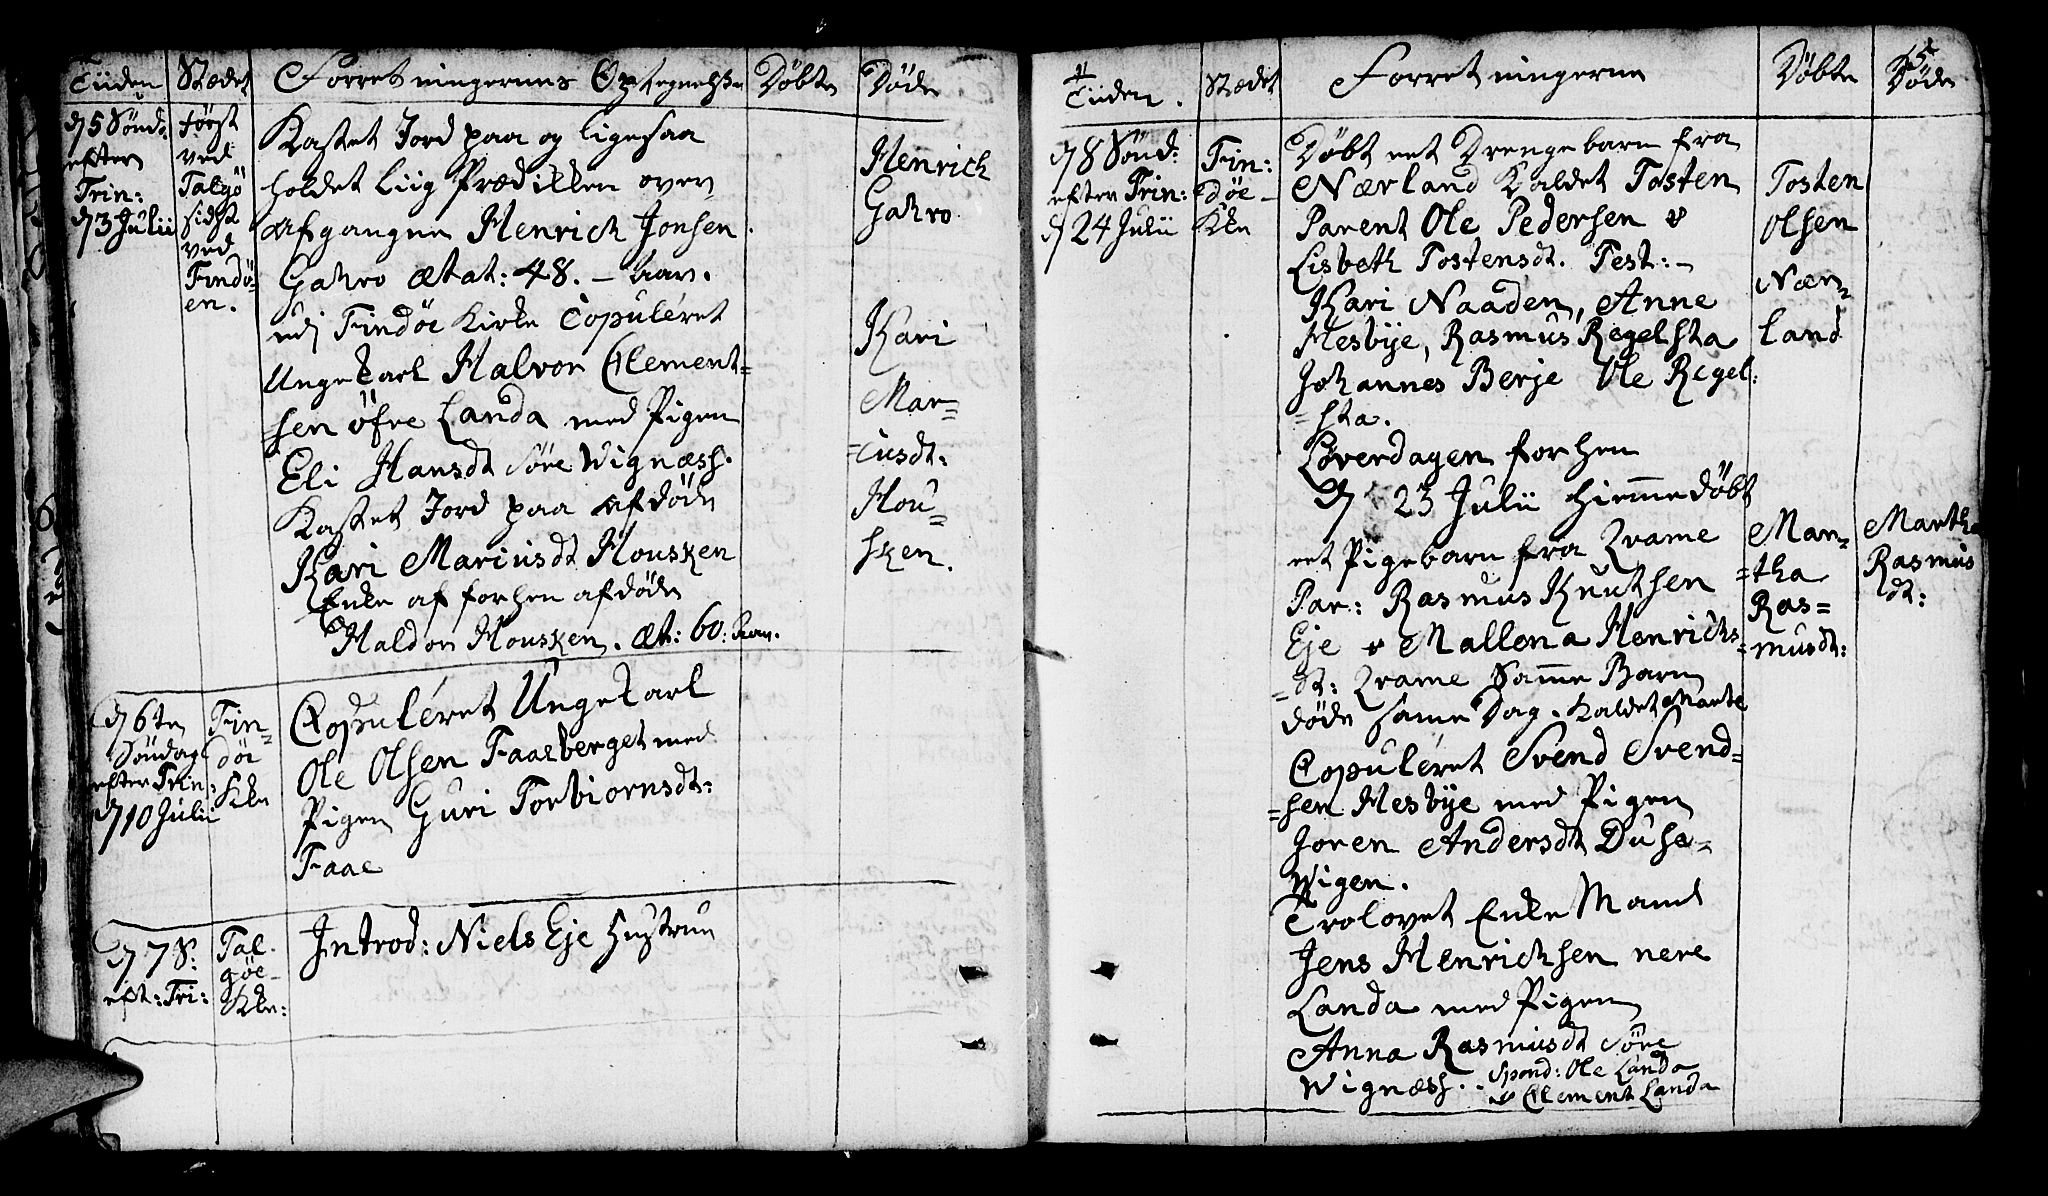 Tiiden Stædet Forretningernes Optegnelsse Döbte Döde
d 5 Sönd:
efften
Trin:
d 3 Julii
først
ved
Talgö
sidst
ved
Findö-
en.
Kastet Jord paa og ligesaa
holdet Liig Prædikken over
afgangne Henrich Jonsen
Gahro ætat: 48. - aar.
udj Findöe Kirke Copuléret
Ungekarl Halvor Clement=
=sen öfre Landa med Pigen
Eli Hansdt Söre Wignæss.
Kastet Jord paa afdöde
Kari Mariusdt Housken
Enke af forhen afdöde
Haldor Housken. æt: 60: aar.
Henrich
Gahro
Kari
Mar=
=iusdt:
Hou=
sken.
d 6te
Söndag
efter Trin:
d 10 Julii
Fin=
döe
Kke
Copuléret Ungekarl
Ole Olsen Faasberget med
Pigen Guri Torbiornsdt:
Faae
d 7 S:
eft: Tri:
Tal-
göe-
Kke:
Introd: Niels Eje Hustrue
Tiiden. Stædet Forretningerne Döbte Döde
45
d 8 Sönd:
efter Trin:
d 24 Julii
Fin:
döe-
Kke
Döbt eet Drengebarn fra
Nærland Kaldet Tosten
Parent Ole Pedersen &
Lisbeth Tostensdt. Test:-
Kari Naaden, Anne
Hesbÿe, Rasmus Regelsta
Johannes Berje Ole Regel:
=sta.
Löverdagen forhen
d 23 Julii hiemedöbt
eet Pigebarn fra Qvame
Par: Rasmus Knutsen
Eje & Mallena Henrichs=
=dt: Qvame Same Barn
döde same Dag. Kaldet Marte
Copuléret Svend Svend=
=sen Hesbÿe med Pigen
Joren Andersdt Duse=
Wigen.
Trolovet Enke Mand
Jens Henrichsen nere
Landa med Pigen
Anna Rasmusdt Söre
Wignæss.. Spond: Ole Landa
& Clement Landa
Tosten
Olsen
Nær=
land
Mar=
=tha
Ras=
musdt:
Martha
Rasmus
dt: